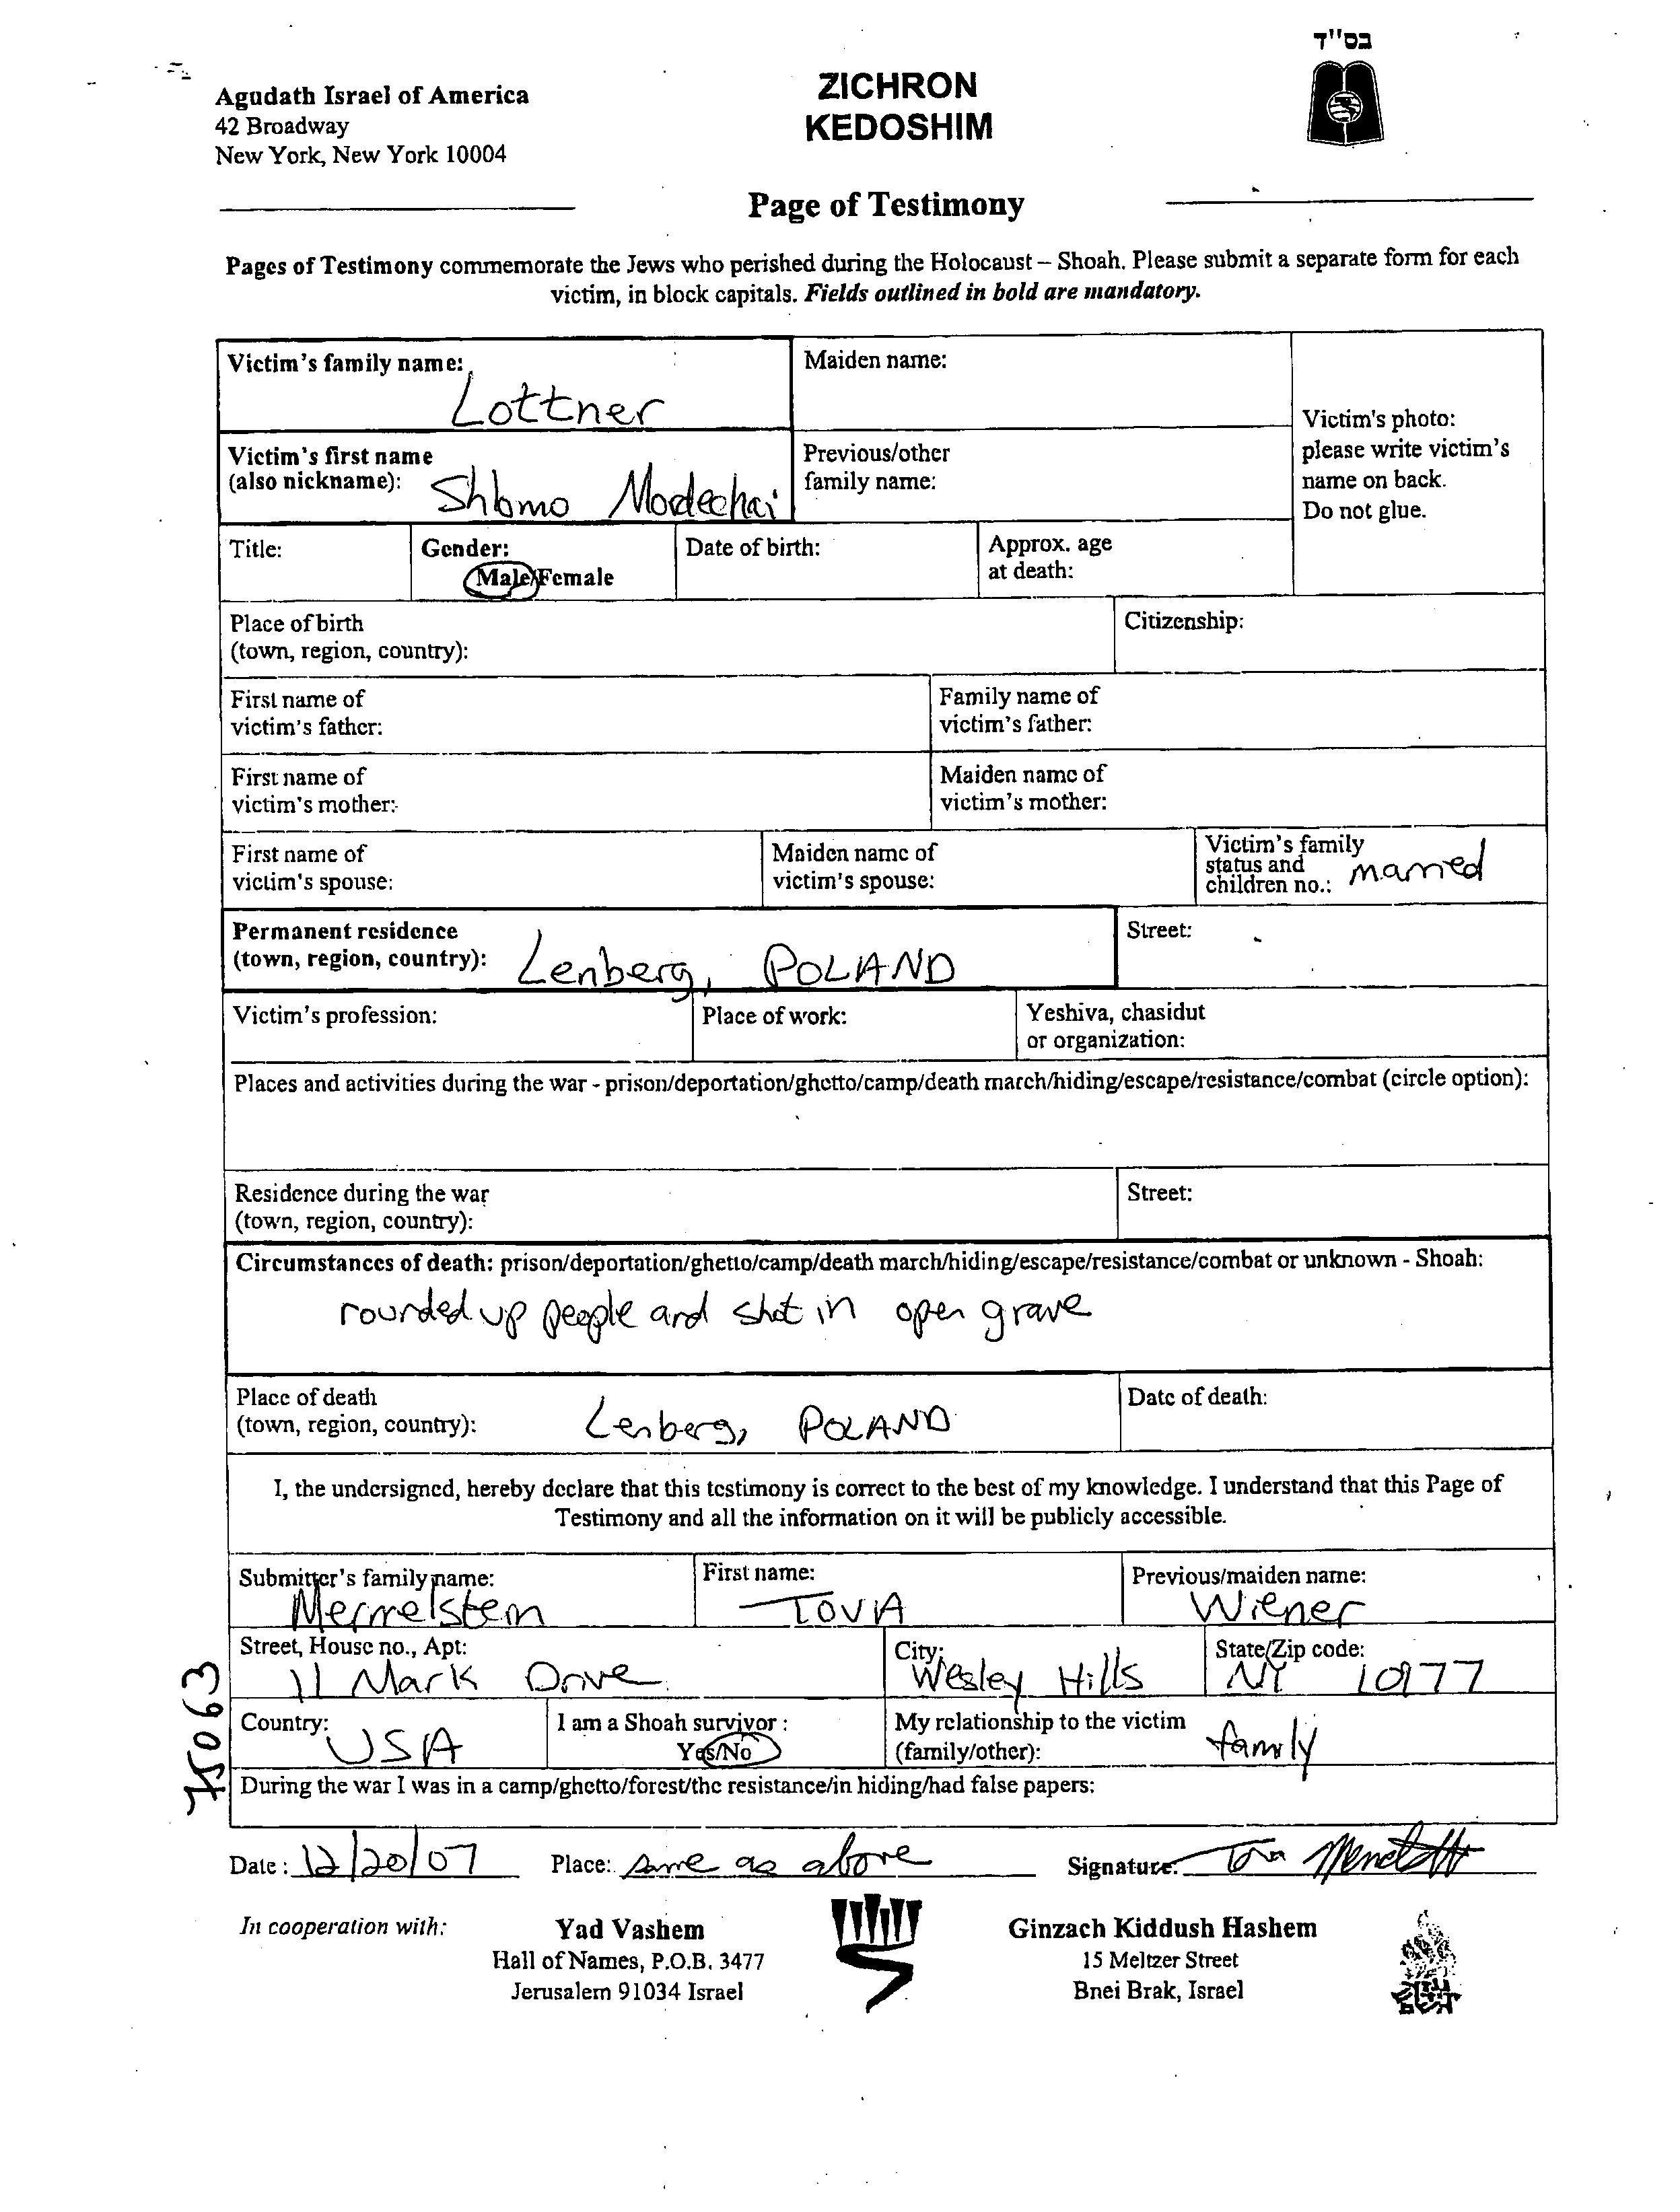 בס"ד
Agudath Israel of America
42 Broadway
New York, New York 10004
ZICHRON
KEDOSHIM
Page of Testimony
Pages of Testimony commemorate the Jews who perished during the Holocaust – Shoah. Please submit a separate form for each
victim, in block capitals. Fields outlined in bold are mandatory.
Victim's family name:
Lottner
Maiden name:
Victim's photo:
please write victim's
name on back.
Do not glue.
Victim's first name
(also nickname): Shlomo Mordechai
Previous/other
family name:
Title:
Gender:
Male/Female
Date of birth:
Approx. age
at death:
Place of birth
(town, region, country):
Citizenship:
First name of
victim's father:
Family name of
victim's father:
First name of
victim's mother:
Maiden name of
victim's mother:
First name of
victim's spouse:
Maiden name of
victim's spouse:
Victim's family
status and
children no.: married
Permanent residence
(town, region, country): Lenberg, POLAND
Street:
Victim's profession:
Place of work:
Yeshiva, chasidut
or organization:
Places and activities during the war - prison/deportation/ghetto/camp/death march/hiding/escape/resistance/combat (circle option):
Residence during the war
(town, region, country):
Street:
Circumstances of death: prison/deportation/ghetto/camp/death march/hiding/escape/resistance/combat or unknown - Shoah:
rounded up people and shot in open grave
Place of death
(town, region, country): Lenberg, POLAND
Date of death:
I, the undersigned, hereby declare that this testimony is correct to the best of my knowledge. I understand that this Page of
Testimony and all the information on it will be publicly accessible.
Submitter's family name:
Mermelstein
First name:
TOVA
Previous/maiden name:
Wiener
Street, House no., Apt:
11 Mark Drive
City:
Wesley Hills
State/Zip code:
NY 10977
Country:
USA
I am a Shoah survivor :
Yes/No
My relationship to the victim
(family/other): family
During the war I was in a camp/ghetto/forest/the resistance/in hiding/had false papers:
75063
Date : 12/20/07 Place: same as above Signature: Tova
In cooperation with:
Yad Vashem
Hall of Names, P.O.B. 3477
Jerusalem 91034 Israel
Ginzach Kiddush Hashem
15 Meltzer Street
Bnei Brak, Israel